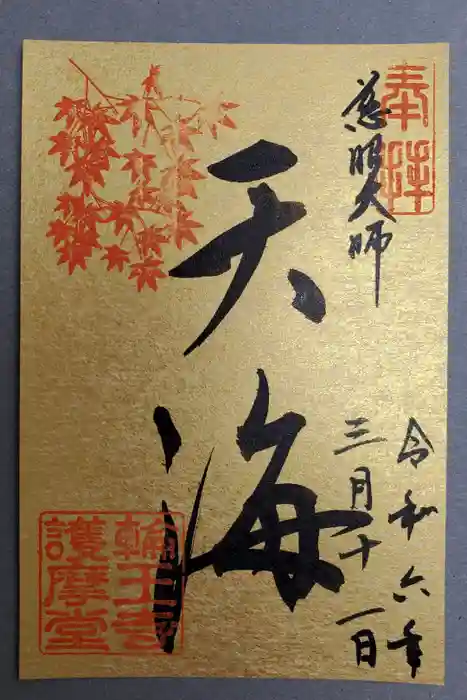 奉拝
慈眼大師
令和六年
三月十一日
天海
輪王寺
護摩堂